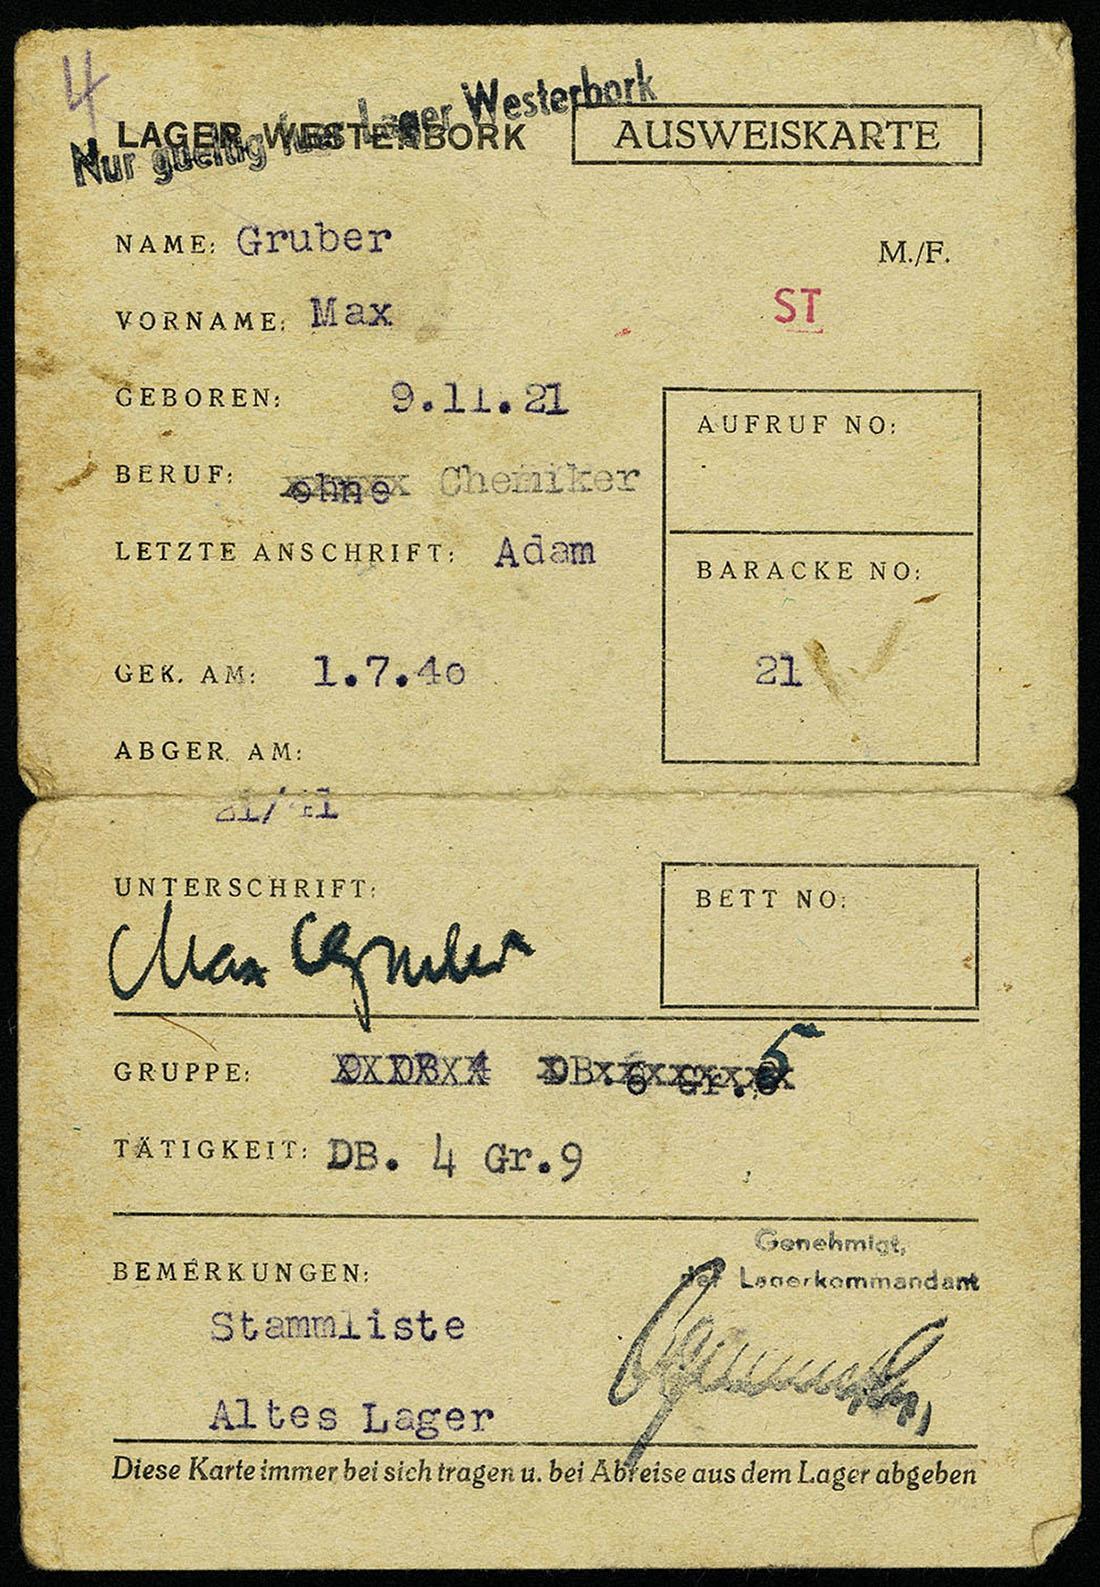 4
Nur gueltig fuer Lager Westerbork
LAGER WESTERBORK
AUSWEISKARTE
NAME: Gruber
M./F.
VORNAME: Max
ST
GEBOREN: 9.11.21
AUFRUF NO:
BERUF: ohne Chemiker
LETZTE ANSCHRIFT: Adam
BARACKE NO:
GEK. AM: 1.7.40
21
ABGER. AM:
21/41
UNTERSCHRIFT:
BETT NO:
Max Gruber
GRUPPE: 9 DB 4 DB. 6 Gr. 5
TÄTIGKEIT: DB. 4 Gr.9
Genehmigt,
BEMERKUNGEN:
der Lagerkommandant
Stammliste
Altes Lager
Diese Karte immer bei sich tragen u. bei Abreise aus dem Lager abgeben